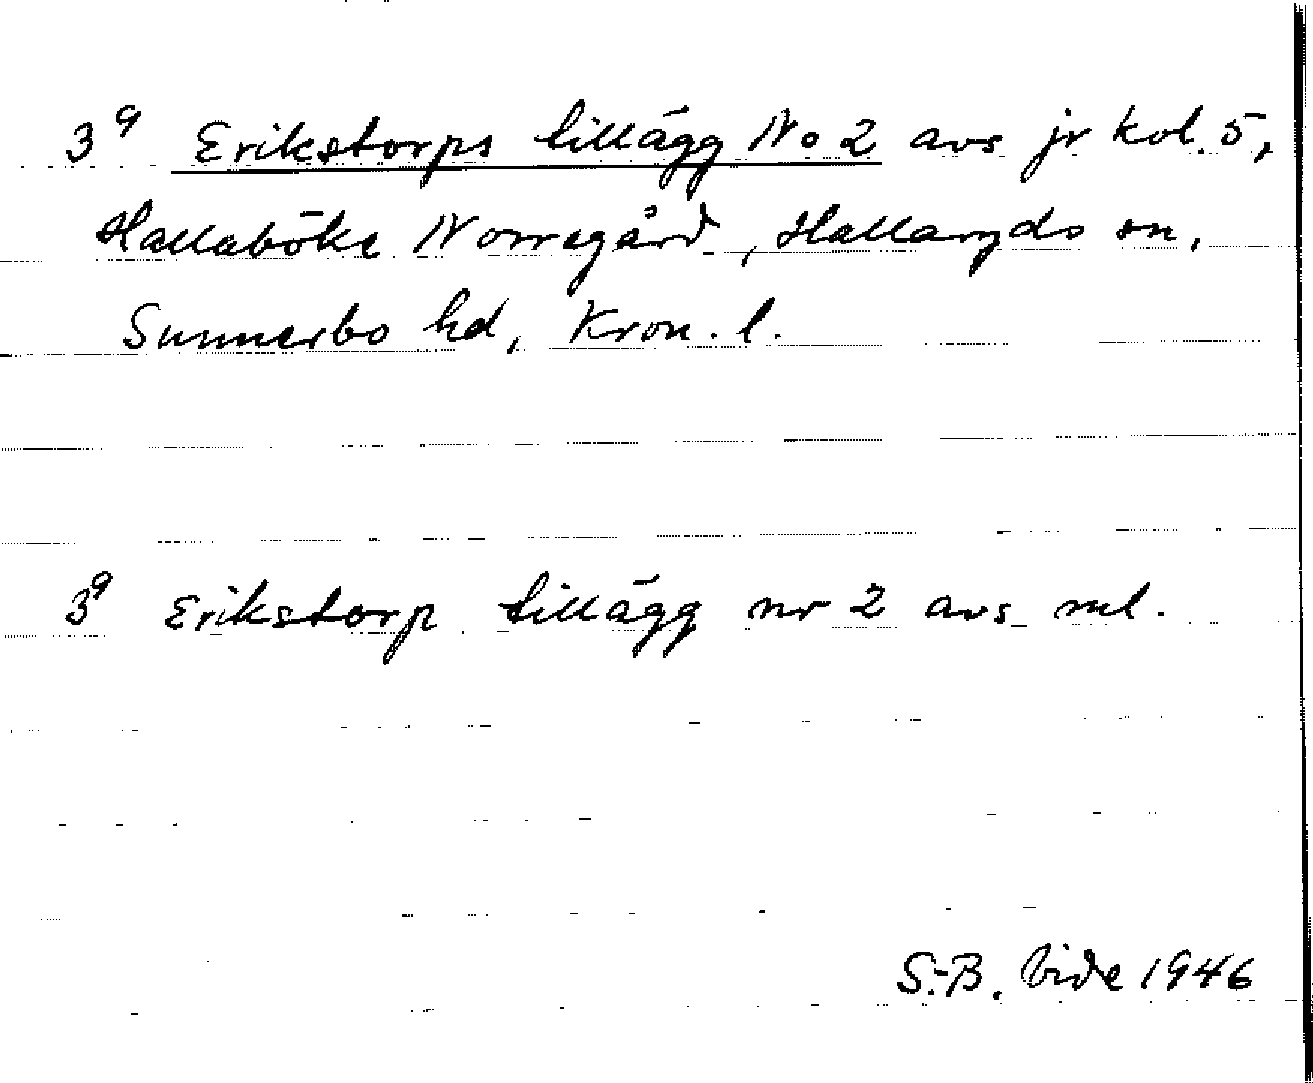 3⁹ Erikstorps tillägg No 2 avs jr kol. 5,
Hallaböke Norregård, Hallaryds sn,
Sunnerbo hd, Kron. l.
3⁹ Erikstorp tillägg nr 2 avs ml.
S.-B. Vide 1946